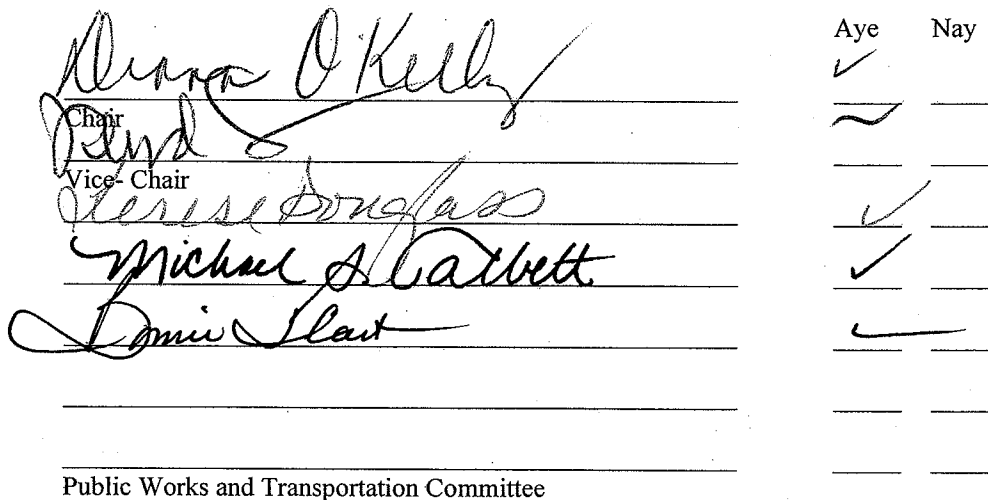 Aye Nay
Dianna O'Kelly ✓
Chair
Vice- Chair
Terese Douglass ✓
Michael S. Talbett ✓
Public Works and Transportation Committee